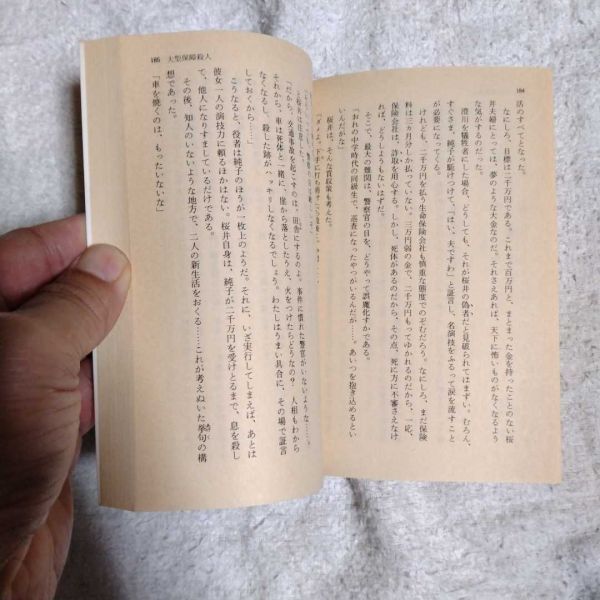 184
活のすべてとなった。
なにしろ、目標は二千万円である。これまで百万円と、まとまった金を持ったことのない桜
井夫婦にとっては、夢のような大金なのだ。それさえあれば、天下に怖いものがなくなるよう
な気がするのだった。
澄川を犠牲者にした場合、どうしても、それが桜井の偽者だと見破られてはまずい。むろん、
すぐさま、純子が駆けつけて、「はい、夫ですわ」と証言し、名演技をふるって涙を流すこと
が必要になる。
けれども、二千万円を払う生命保険会社も慎重な態度でのぞむだろう。なにしろ、まだ保険
料は三カ月分しか払っていない。三万円弱の金で、二千万円もってゆかれるのだから、一応、
保険会社は、詐取を用心する。しかし、死体があるのだから、その点、死に方に不審さえなけ
れば、どうしようもないはずだ。
そこで、最大の難関は、警察官の目を、どうやって誤魔化すかである。
「おれの中学時代の同級生で、巡査になったやつがいるんだが……。あいつを抱き込めるとい
いんだがな」
桜井は、そんな買収策も考えた。
185 大型保障殺人
「だから、交通事故を起こすのは、田舎にするのよ。事件に慣れた警官がいないような……。
それから、車は死体と一緒に、崖から落としたうえ、火をつけたらどうなの？ 人相もわから
なくなるし、殺した跡がハッキリしなくなるでしょう。わたしはうまい具合に、その場で証言
しておくから……」
こうなると、役者は純子のほうが一枚上のようだ。それに、いざ実行してしまえば、あとは
彼女一人の演技力に頼るほかはない。桜井自身は、純子が二千万円を受けとるまで、息を殺し
て、他人になりすましているだけである。
その後、知人のいないような地方で、二人の新生活をおくる……これが考えぬいた挙句の構
想であった。
「車を焼くのは、もったいないな」